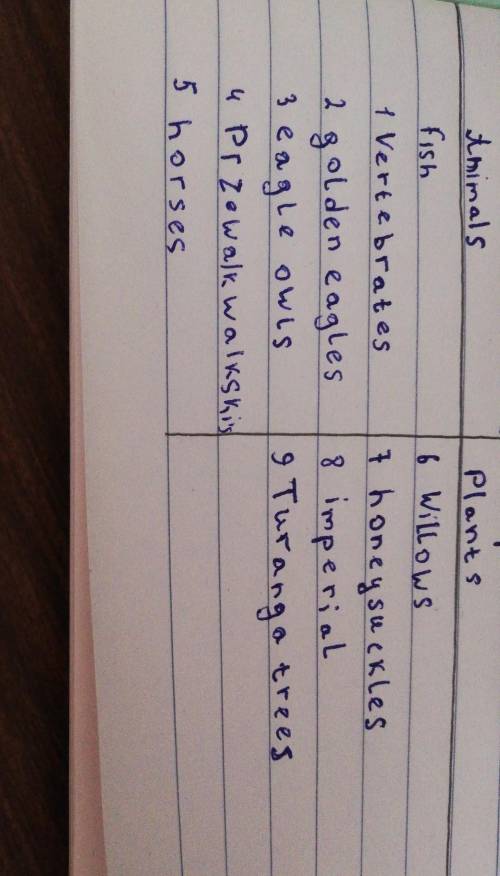 Animals
fish
1 Vertebrates
2 golden eagles
3 eagle owls
4 Przowalkwalkski's
5 horses
Plants
6 Willows
7 honeysuckles
8 imperial
9 Turanga trees